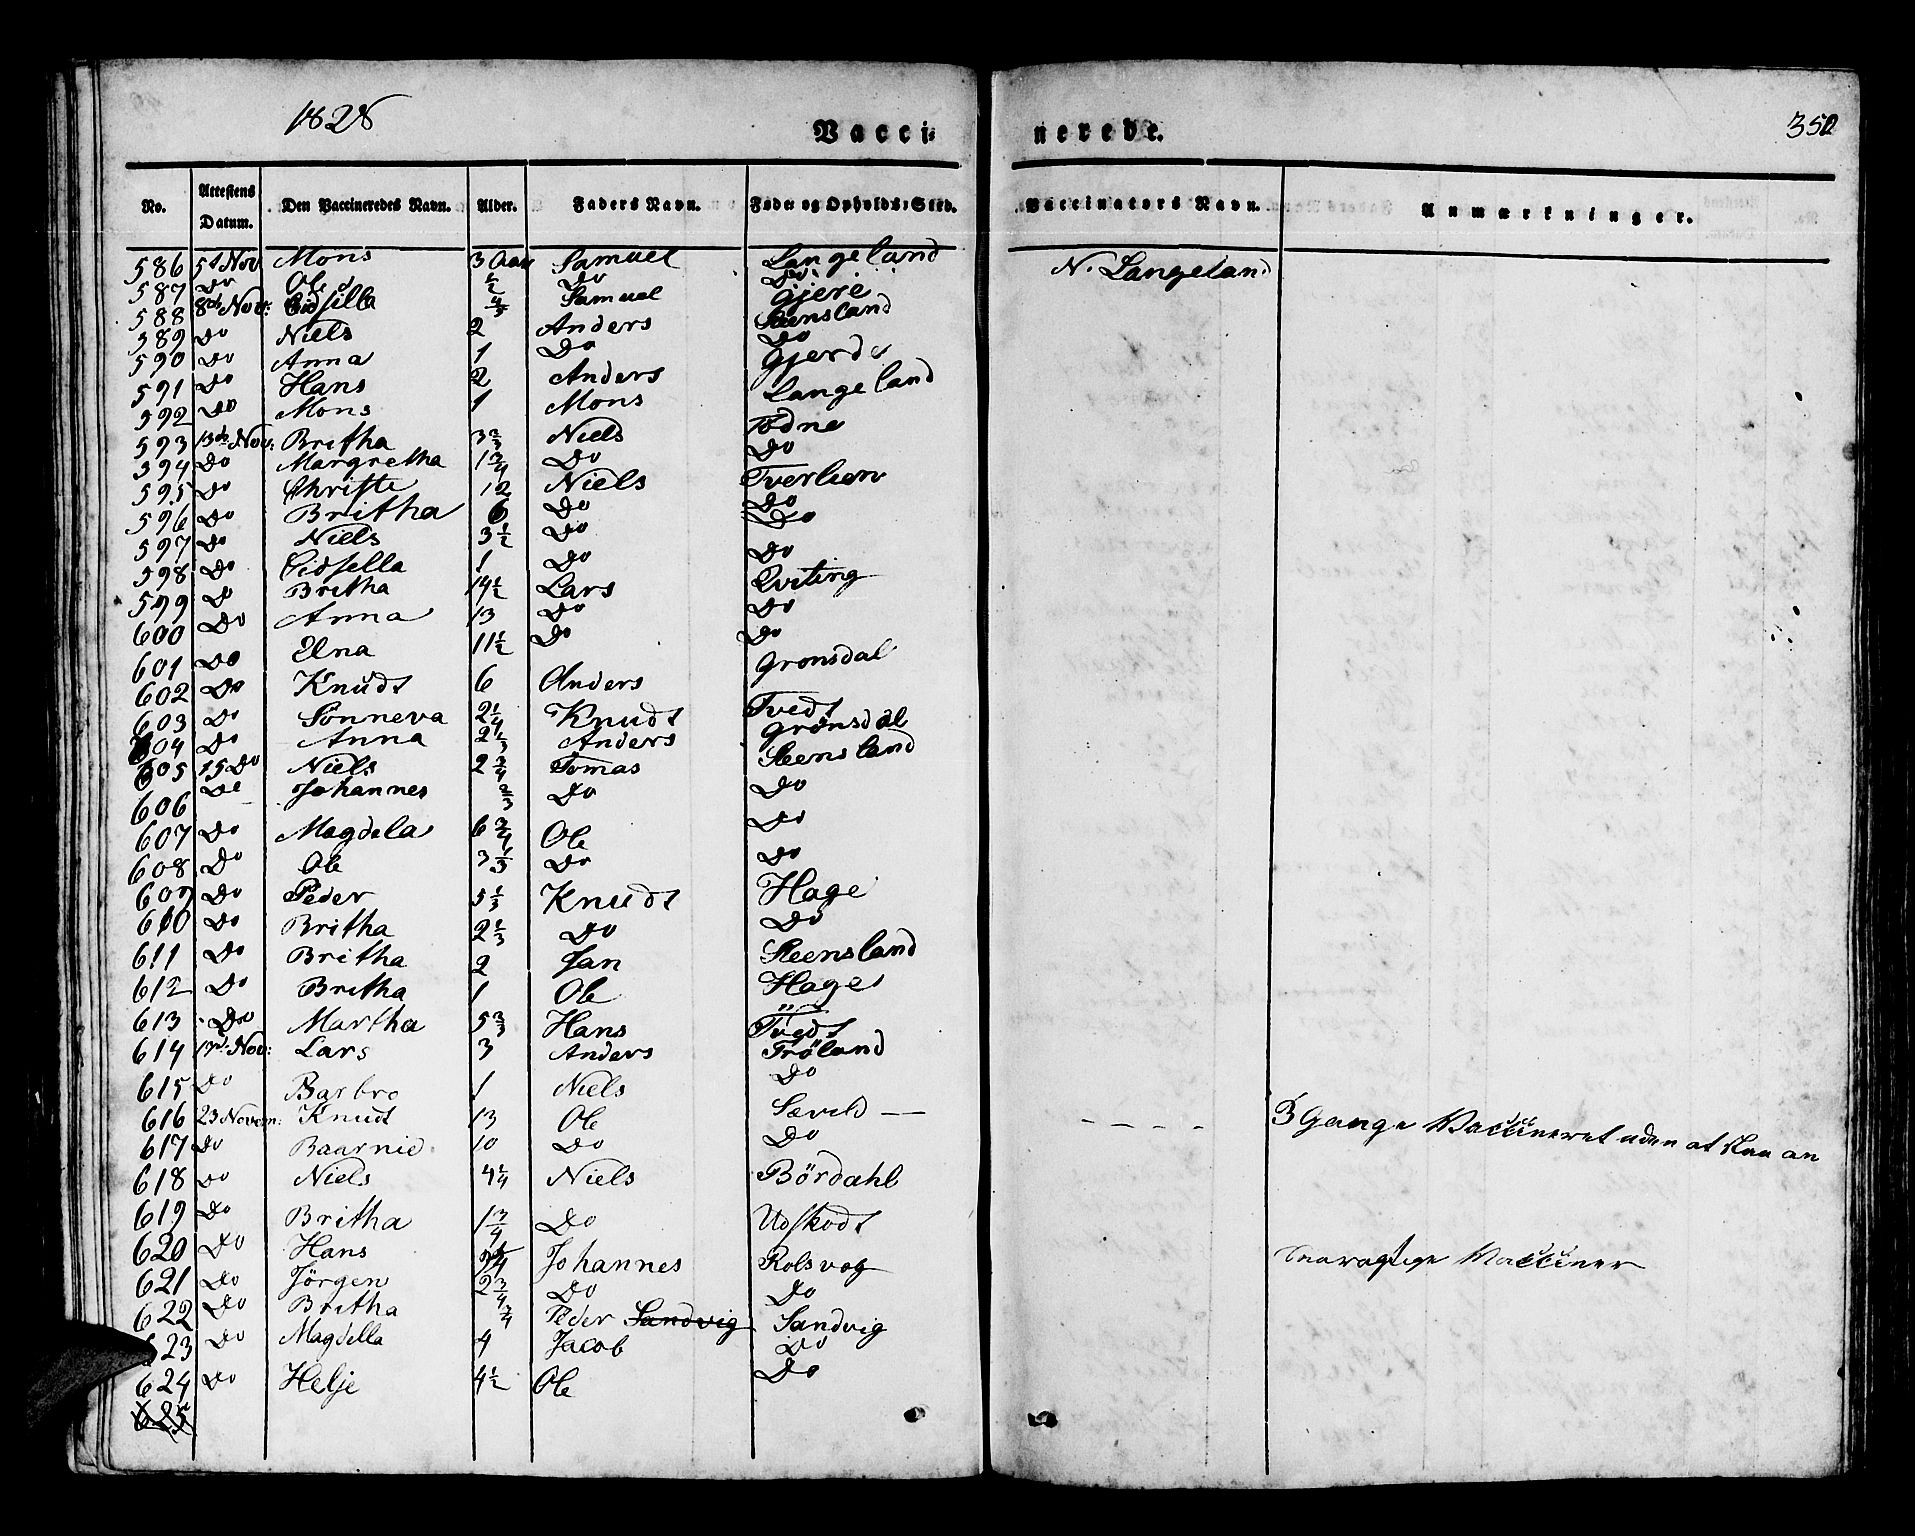 1828
Vacci: nerede.
350
No. Attestens Datum. Den Vaccineredes Navn. Alder. Faders Navn. Føde: og Opholds: Sted. Vaccinators Navn. Anmærkninger.
586 5t Nov Mons 3 Aar Samuel Langeland N. Langeland
587 Do Ole 1/2 Do Do
588 8de Nov: Cidsilla Samuel Gjere
589 Do Niels 2 Anders Steensland
590 Do Anna 1 Do Do
591 Do Hans 2 Anders Gjerde
592 Do Mons 1 Mons Langeland
593 13de Nov: Britha 3 2/3 Niels Tødne
594 Do Margretha 1 3/4 Do Do
595 Do Christe 12 Niels Tverlien
596 Do Britha 6 Do Do
597 Do Niels 3 1/2 Do Do
598 Do Cidsella 1 Do Do
599 Do Britha 14 1/2 Lars Qviting
600 Do Anna 13 Do Do
601 Do Elna 11 1/2 Do Do
602 Do Knudt 6 Anders Gronsdal
603 Do Sønneva 2 1/4 Knudt Tvedt
604 Do Anna 2 1/3 Anders Grønsdal
605 15 Do Niels 2 3/4 Tomas Steensland
606 Do Johannes 2/3 Do Do
607 Do Magdela 6 3/4 Ole Do
608 Do Ole 3 1/3 Do Do
609 Do Peder 5 1/3 Knudt Hage
610 Do Britha 2 1/3 Do Do
611 Do Britha 2 Jan Steensland
612 Do Britha 1 Ole Hage
613 Do Martha 5 2/3 Hans Tvedt
614 17d Nov: Lars 3 Anders Trøland
615 Do Barbro 1 Niels Do
616 23 Novem: Knudt 13 Ole Sævild — - - - - 3 Gange Vaccineret uden at slaa an
617 Do Baarnie 10 Do Do
618 Do Niels 4 1/4 Niels Bördahl
619 Do Britha 1 3/4 Do Udskodt
620 Do Hans Johannes Rolsvog Vacciner
621 Do Jörgen 2 3/4 Do Do
622 Do Britha 3/4 Peder Sandvig Sandvig
623 Do Magdella 4 Jacob Do
624 Do Helje 4 1/2 Ole Do
625